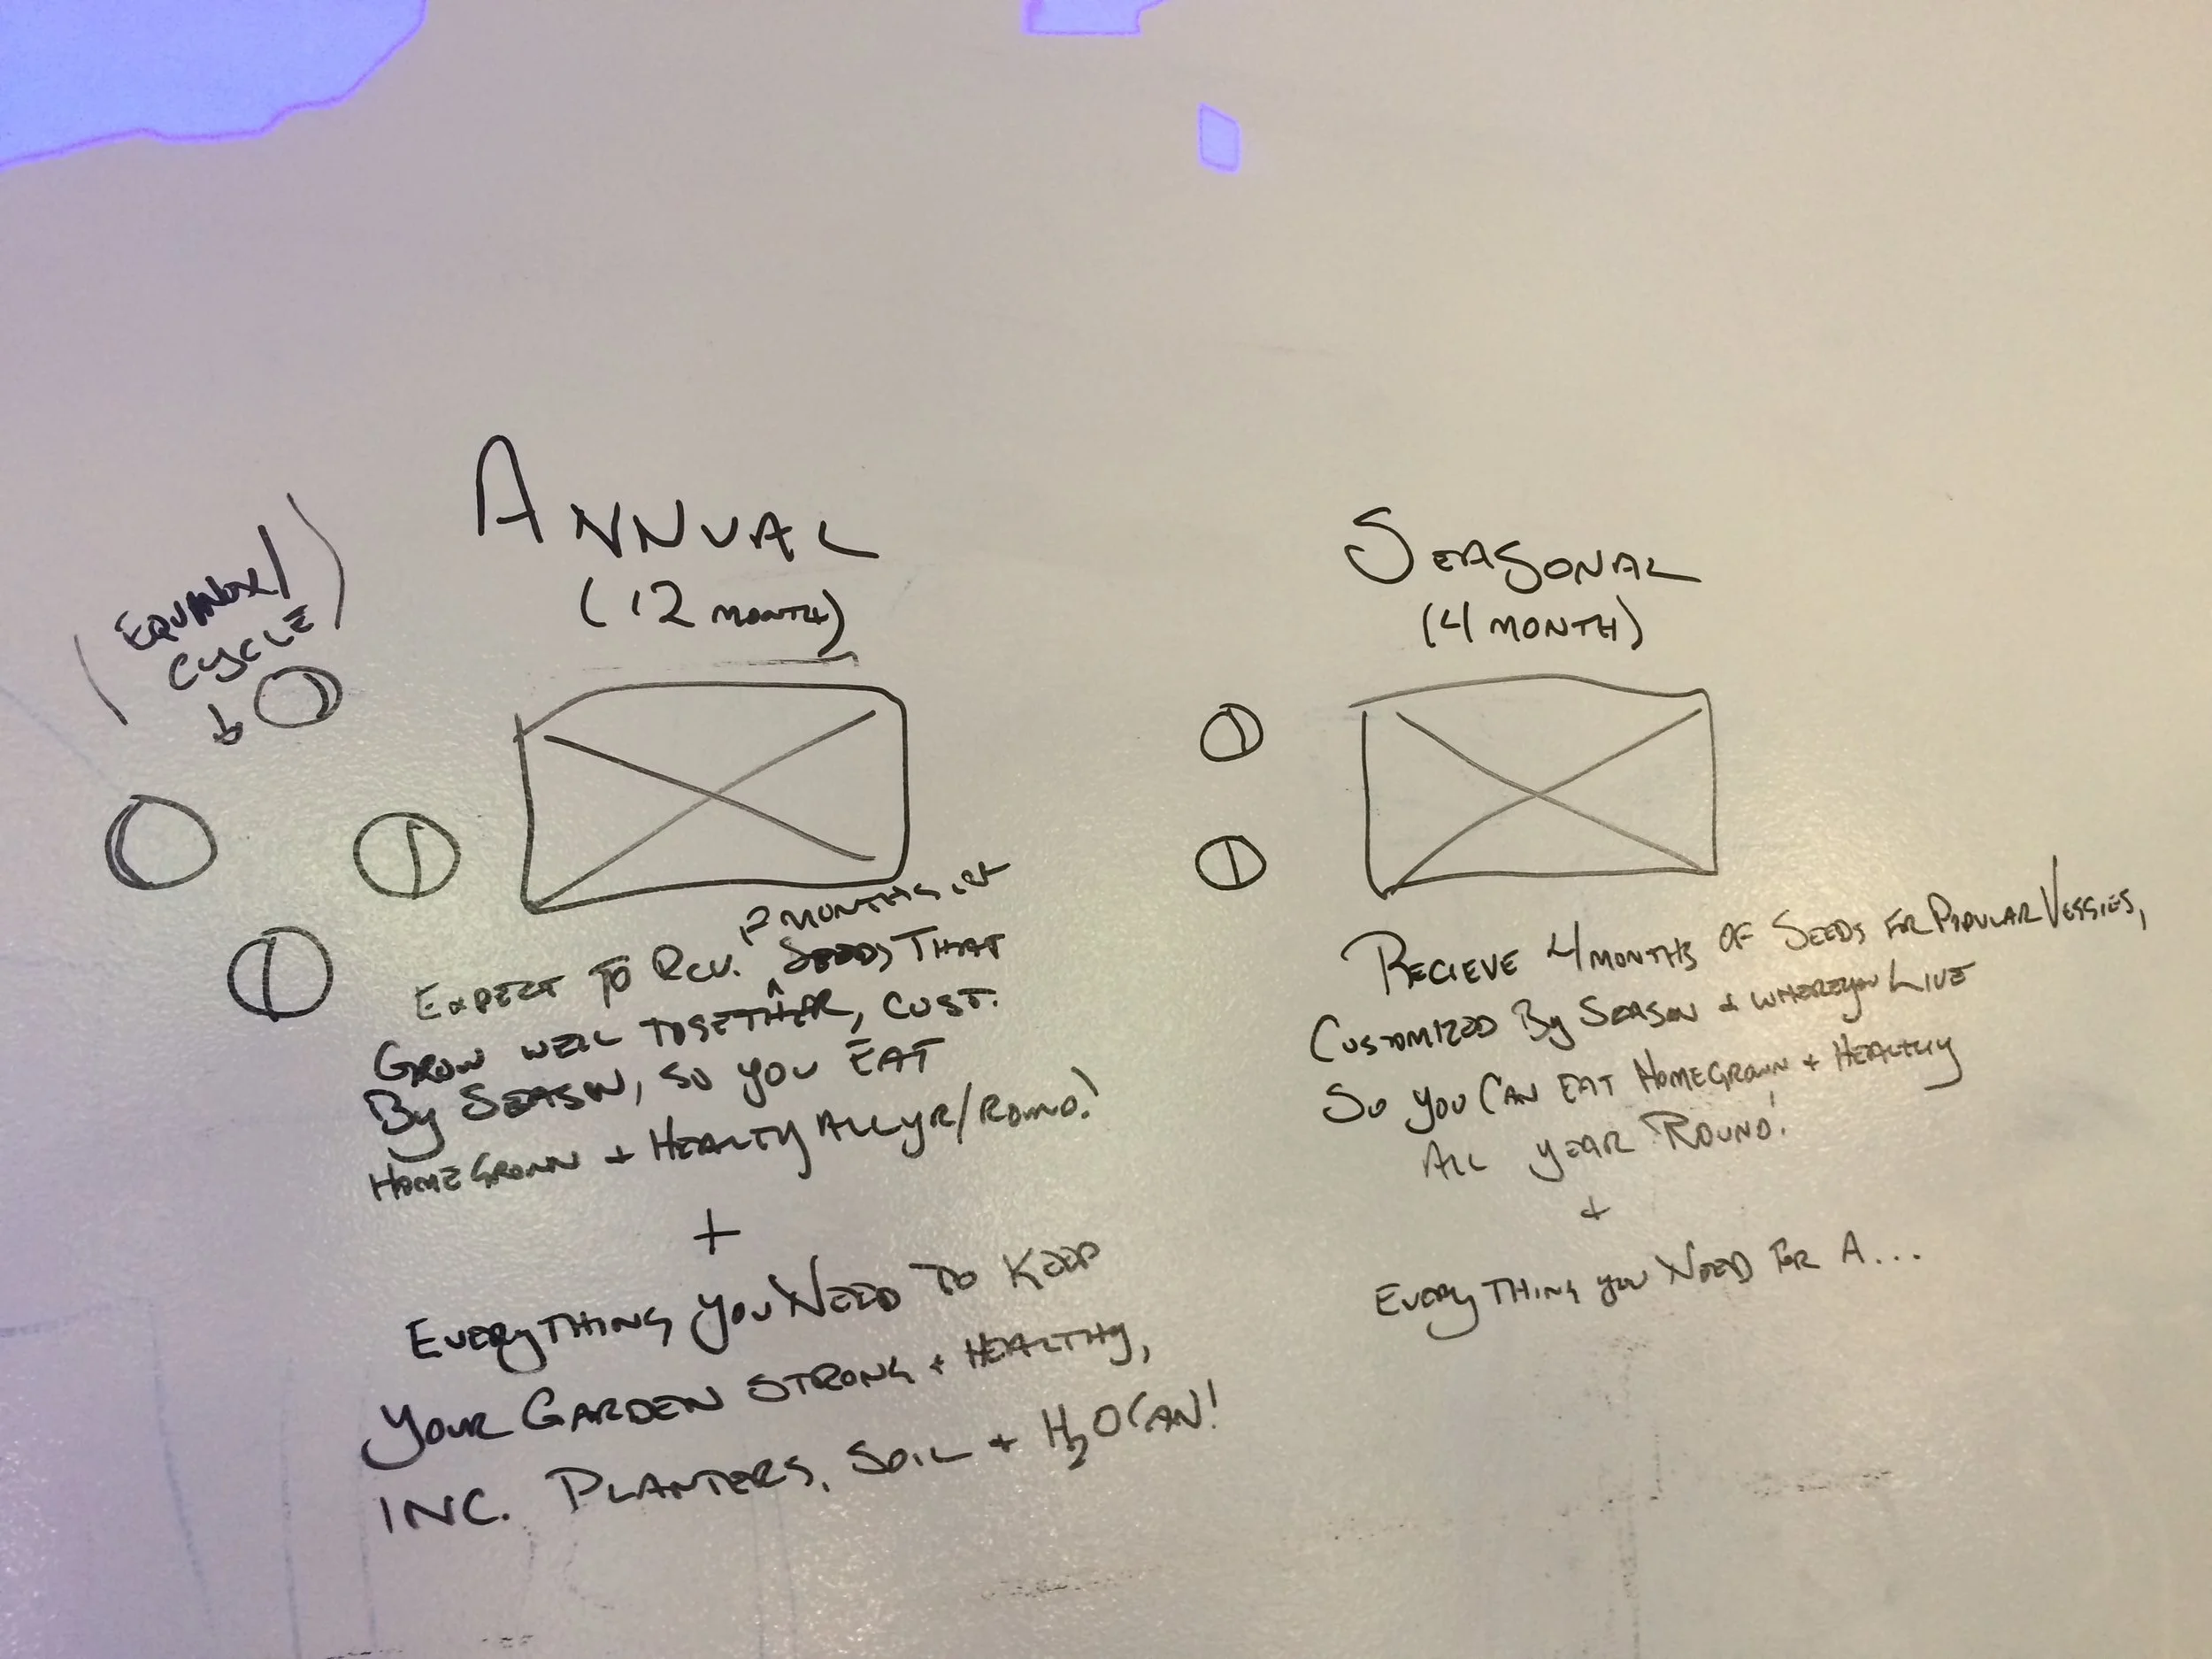 (EQUINOX/
CYCLE)
ANNUAL
(12 MONTH)
12 MONTHS OF
EXPECT TO RCV. ^ SEEDS THAT
GROW WELL TOGETHER, CUST.
BY SEASON, SO YOU EAT
HOMEGROWN + HEALTY ALL YR/ROUND!
+
EVERYTHING YOU NEED TO KEEP
YOUR GARDEN STRONG + HEALTHY,
INC. PLANTERS, SOIL + H2O CAN!
SEASONAL
(4 MONTH)
RECIEVE 4 MONTHS OF SEEDS FOR POPULAR VEGGIES,
CUSTOMIZED BY SEASON + WHERE YOU LIVE
SO YOU CAN EAT HOMEGROWN + HEALTHY
ALL YEAR ROUND!
+
EVERYTHING YOU NEED FOR A...